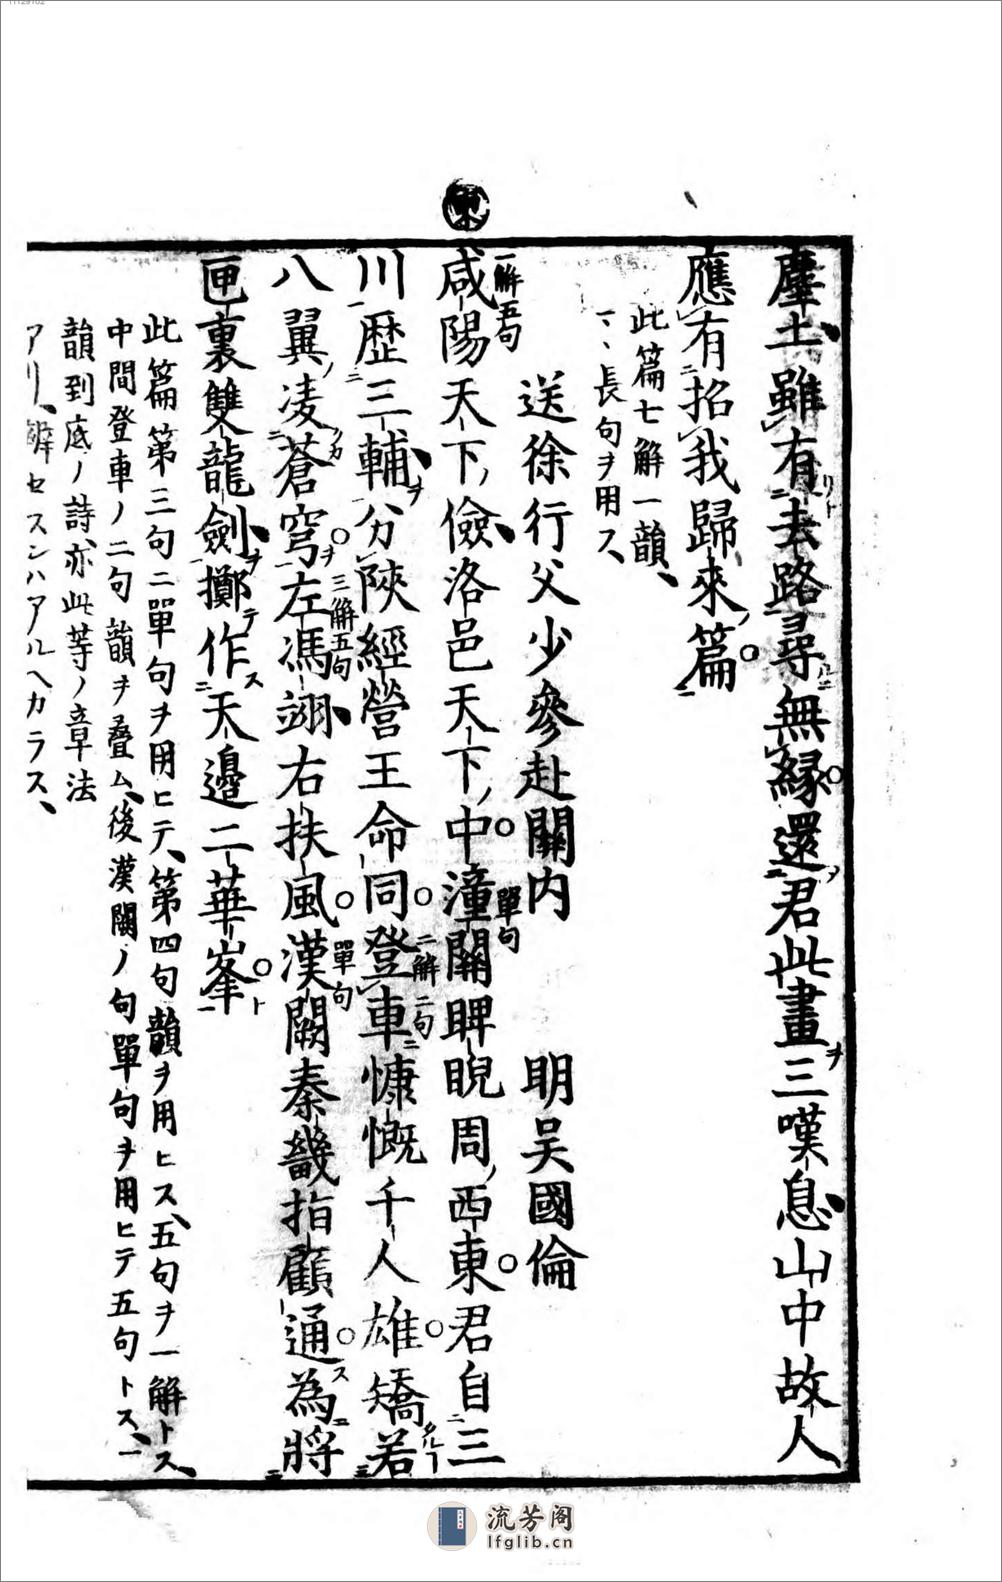 11129102
東
塵土雖有去路尋無縁還君此畫三嘆息山中故人
應有招我歸來篇
此篇七解一韻、
長句ヲ用ス、
送徐行父少參赴關内　明吳國倫
一解五句
咸陽天下儉洛邑天下中潼關睥睨周西東君自三
單句
川歴三輔分陝經營王命同登車慷慨千人雄矯若
二解二句
八翼凌蒼穹左馮翊右扶風漢闕秦畿指顧通為將
三解五句
單句
匣裏雙龍劍擲作天邊二華峯
此篇第三句ニ單句ヲ用ヒテ、第四句韻ヲ用ヒス、五句ヲ一解トス、
中間登車ノ二句韻ヲ疊ム、後漢闕ノ句單句ヲ用ヒテ五句トス、一
韻到底ノ詩、亦此等ノ章法
アリ、辨セスンハアルヘカラス、
流芳阁
lfglib.cn